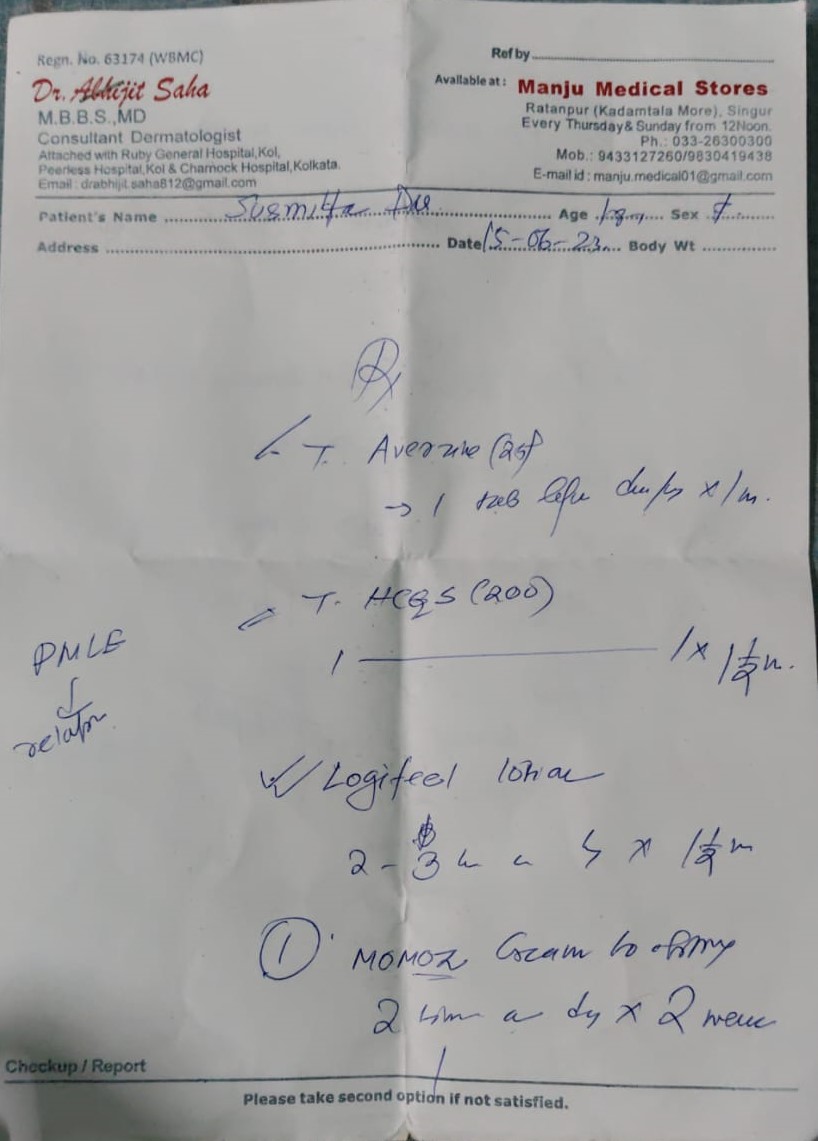 Regn. No. 63174 (WBMC)
Dr. Abhijit Saha
M.B.B.S.,MD
Consultant Dermatologist
Attached with Ruby General Hospital,Kol,
Peerless Hospital,Kol & Charnock Hospital,Kolkata.
Email : drabhijit.saha812@gmail.com
Ref by
Available at : Manju Medical Stores
Ratanpur (Kadamtala More), Singur
Every Thursday & Sunday from 12Noon.
Ph.: 033-26300300
Mob.: 9433127260/9830419438
E-mail id : manju.medical01@gmail.com
Patient's Name Susmita Age Sex F
Address Date 15-06-23 Body Wt
Rx
T.
→ 1 tab x 1m.
T. HCQS (200)
1 — 1 x 1 1/2 m.
PMLE
Logifeel lotion
2-3 x 1 1/2 m
1 MOMOZ Cream to
2 a dy x 2 week
Checkup / Report
Please take second option if not satisfied.